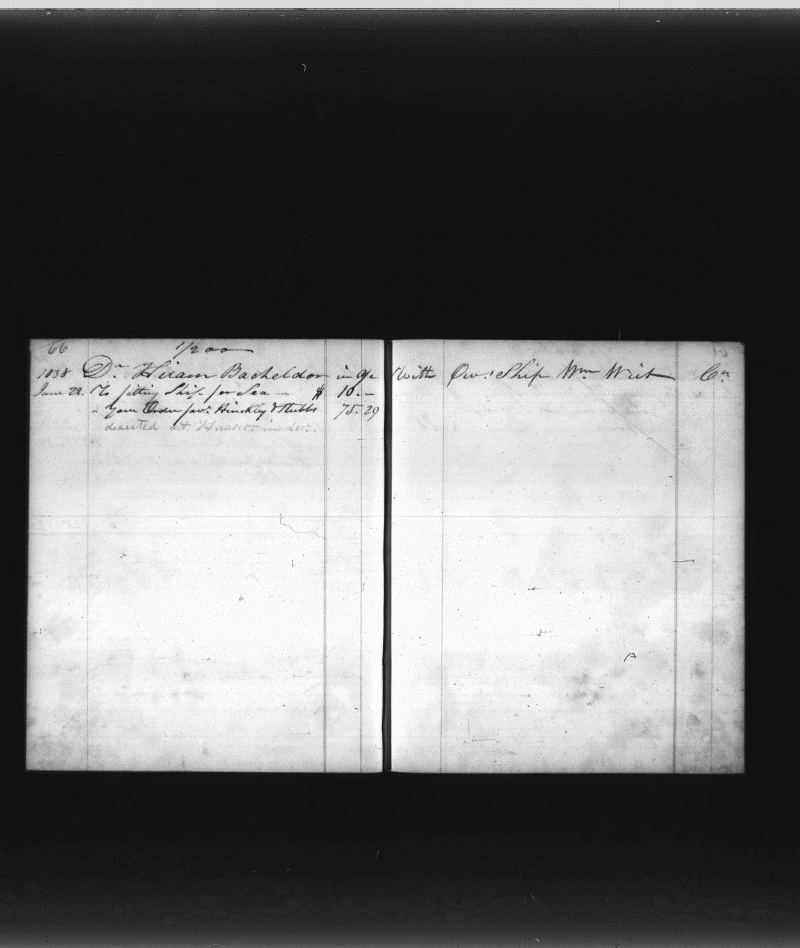 66
1/200
1838 Dr Hiram Bacheldor in a/c With Ow.s Ship Wm Wirt Cr
June 22 To fitting Ship for Sea — $ 10.—
" Your Order fav. Hinckley & Stubbs 75.29
deserted at in